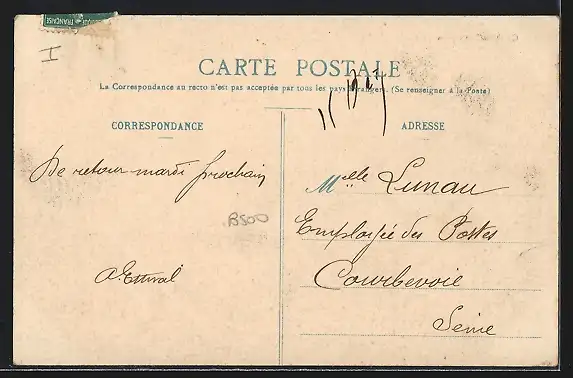 I
CARTE POSTALE
La Correspondance au recto n'est pas acceptée par tous les pays étrangers. (Se renseigner à la Poste)
CORRESPONDANCE
De retour mardi prochain
B500
ADRESSE
Melle Lunau
Employée des Postes
Courbevoie
Seine